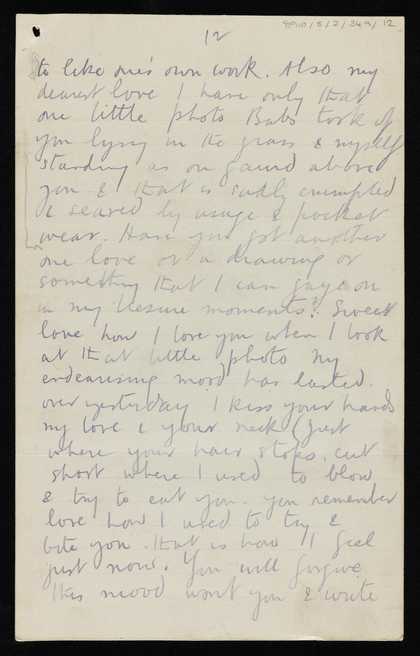 12
to like one's own work. Also my
dearest love I have only that
one little photo Babs took of
you lying in the grass & myself
standing as on gaurd above
you & that is sadly crumpled
& seared by usage & pocket
wear. Have you got another
one love or a drawing or
something that I can gaze on
in my liesure moments? Sweet
love how I love you when I look
at that little photo my
endearising mood has lasted
over yesterday I kiss your hands
my love & your neck (just
where your hair stops. cut
short where I used to blow
& try to eat you. you remember
love how I used to try &
bite you. That is how I feel
just now. You will forgive
this mood wont you & write